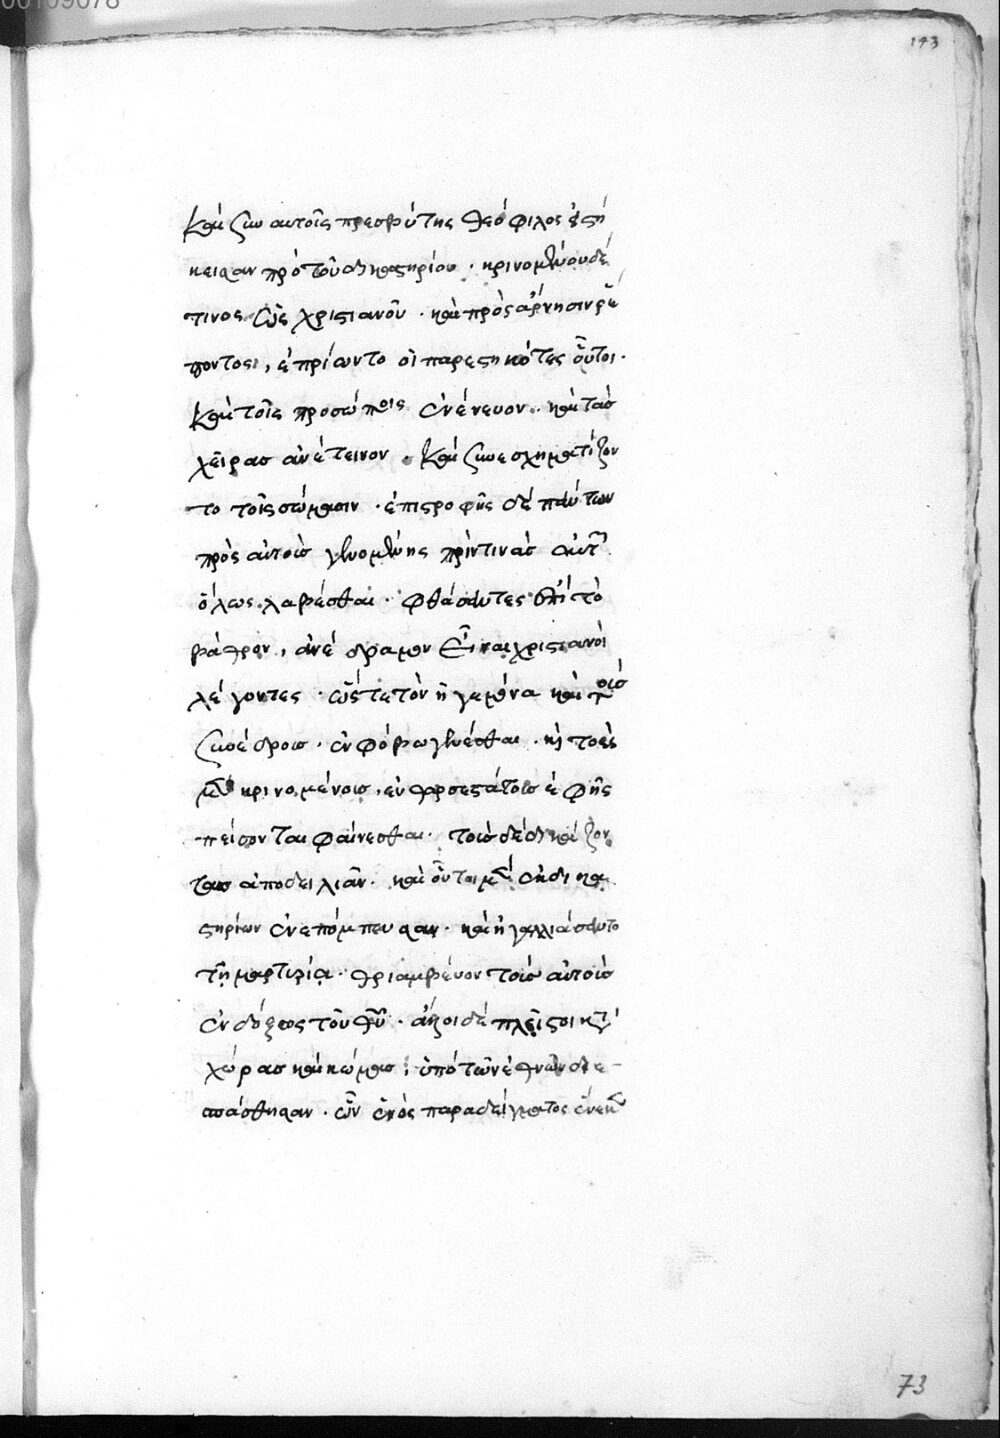 00109078
143
καὶ σὺν αὐτοῖς πρεσβύτης θεόφιλος ἑστή
κεισαν πρὸ τοῦ δικαστηρίου · κρινομένου δέ
τινος ὡς χριστιανοῦ · καὶ πρὸς ἄρνησιν ῥέ
ποντος, ἐπρίωντο οἱ παρεστηκότες οὗτοι ·
καὶ τοῖς προσώποις ἐνένευον · καὶ τὰς
χεῖρας ἀνέτεινον · καὶ συνεσχηματίζον
το τοῖς σώμασιν · ἐπιστροφῆς δὲ πάντων
πρὸς αὐτοὺς γενομένης πρίν τινας αὐτῶν
ὅλως λαβέσθαι · φθάσαντες ἐπὶ τὸ
βάθρον, ἀνέδραμον εἶναι χριστιανοὶ
λέγοντες · ὥστε τὸν ἡγεμόνα καὶ τοὺς
συνέδρους · ἐν φόβω γενέσθαι · καὶ τοὺς
μὲν κρινομένους, εὐθαρσεστάτους ἐφ' οἷς
πείσονται φαίνεσθαι · τοὺς δὲ δικάζον
τας ἀποδειλιᾶν · καὶ οὗτοι μὲν ἐκ δικα
στηρίων ἐνεπόμπευσαν · καὶ ἠγαλλιάσαντο
τῆ μαρτυρία · θριαμβεύοντος αὐτοὺς
ἐνδόξως τοῦ θυ · ἄλλοι δὲ πλεῖστοι κατὰ
χώρας καὶ κώμας, ὑπὸ τῶν ἐθνῶν διε-
σπάσθησαν · ὧν ἑνὸς παραδείγματος ἕνεκεν
73